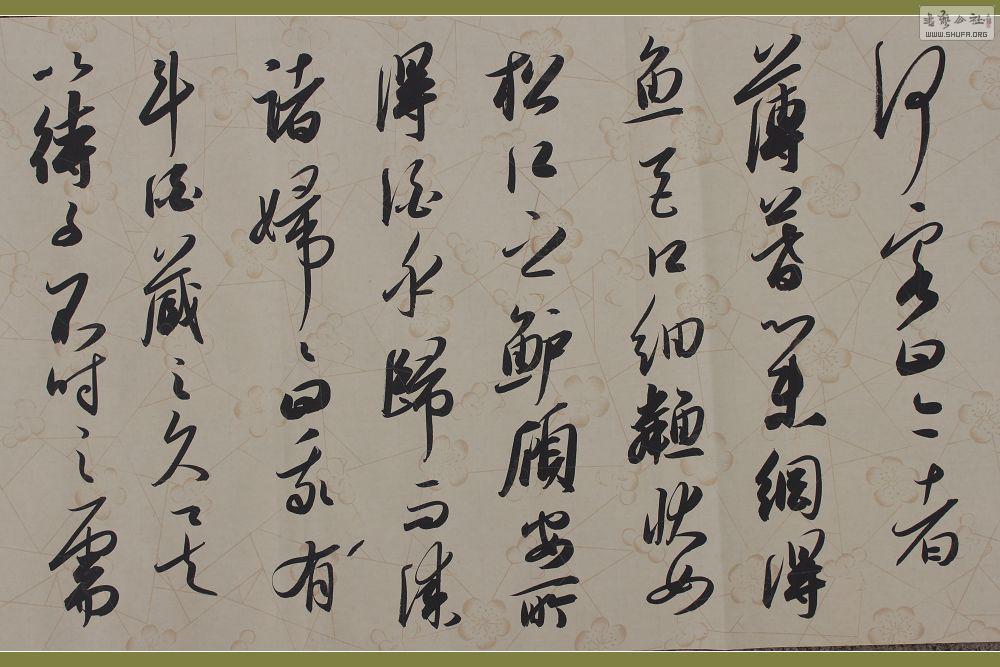 何客曰今者
薄暮舉網得
魚巨口細鱗狀如
松江之鱸顧安所
得酒乎歸而謀
諸婦〻曰我有
斗酒藏之久矣
以待子不時之需
書藝公社
WWW.SHUFA.ORG